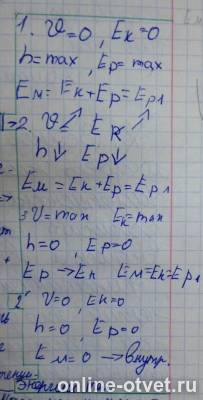 1. V=0, Eк=0
h=max, Ep=max
Eм=Eк+Ep=Ep1
2. V↗ Eк↗
h↓ Ep↓
Eм=Eк+Ep=Ep1
3 V=max Eк=max
h=0, Ep=0
Ep→Eк Eм=Eк=Ep1
V=0, Eк=0
h=0, Ep=0
Eм=0 → внутр.
online-otvet.ru